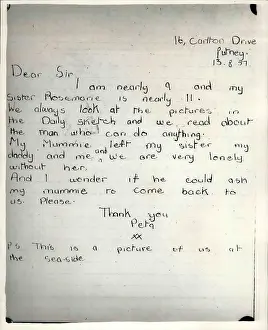 16, Carlton Drive
Putney.
13.8.57
Dear Sir
I am nearly 9 and my
Sister Rosemarie is nearly 11.
We always look at the pictures in
the Daily sketch and we read about
the man who can do anything.
My Mummie left my sister my
daddy and me and we are very lonely
without her.
And I wonder if he could ask
my mummie to come back to
us. Please.
Thank you
Peta
xx
PS This is a picture of us at
the sea-side